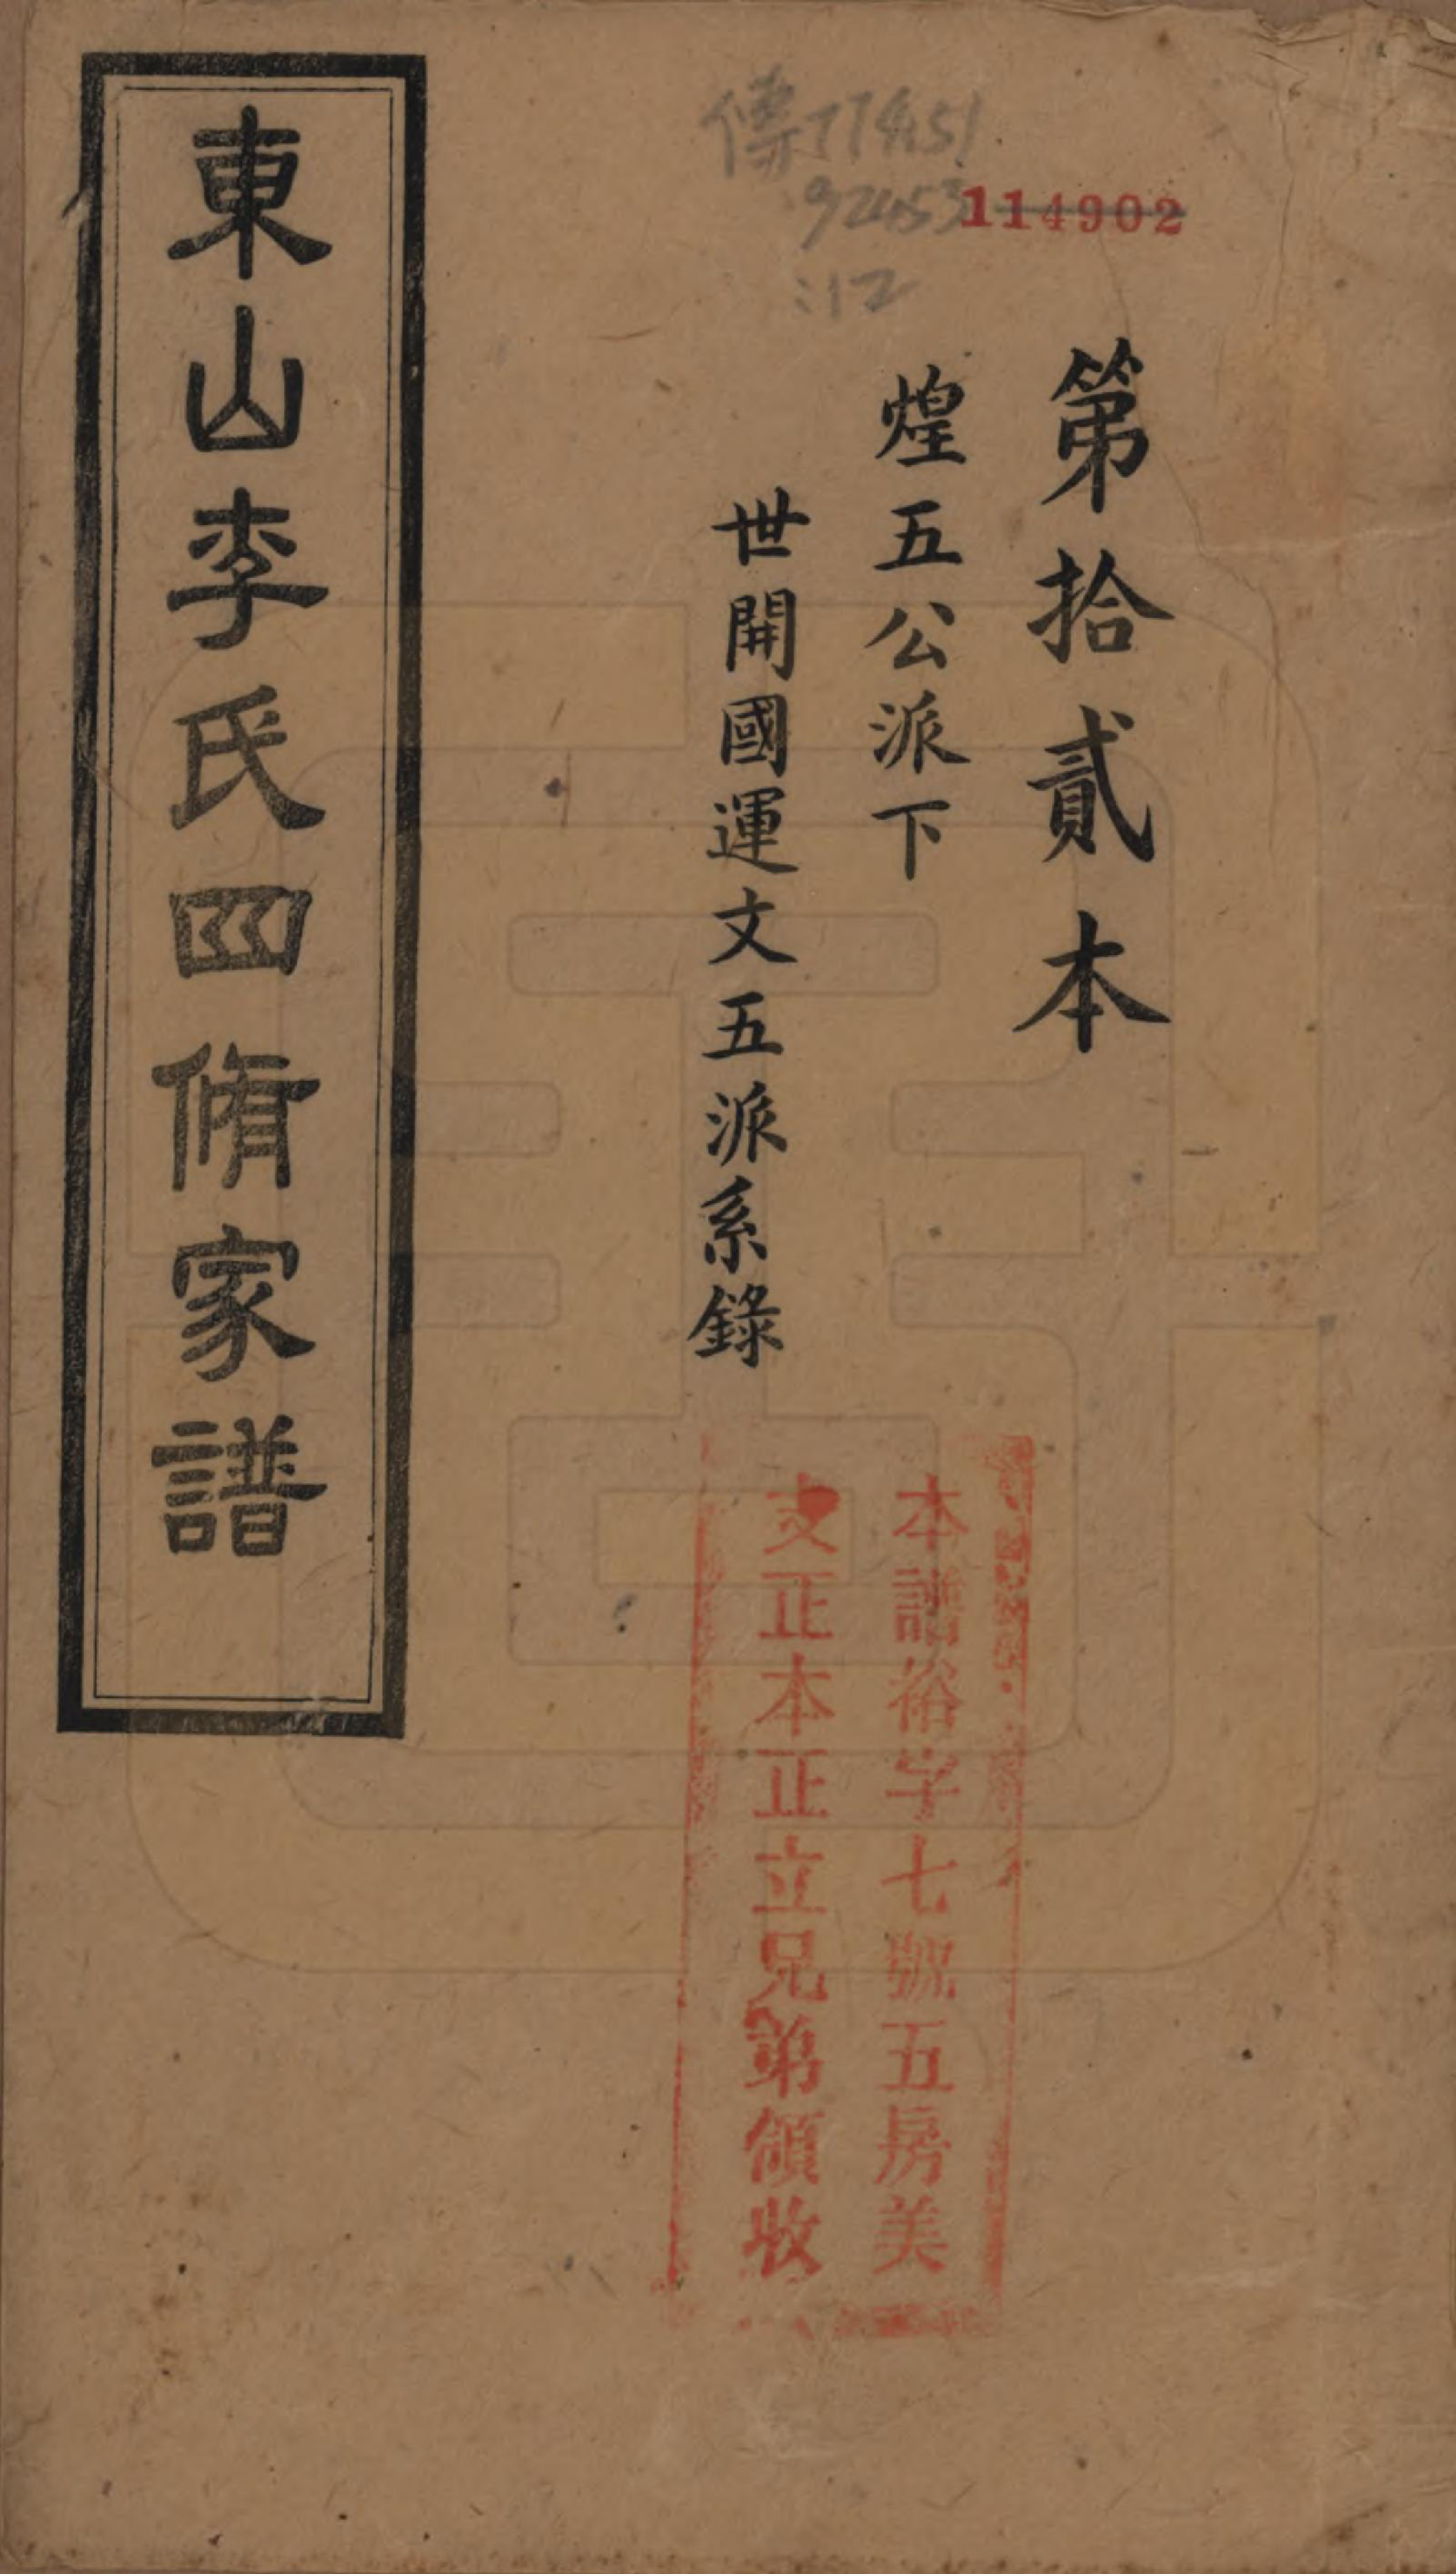 傳774451
92453
:12
114902
第拾貳本
煌五公派下
世開國運文五派系錄
東山李氏四脩家譜
本譜裕字七號五房美
文正本正立兄弟領收